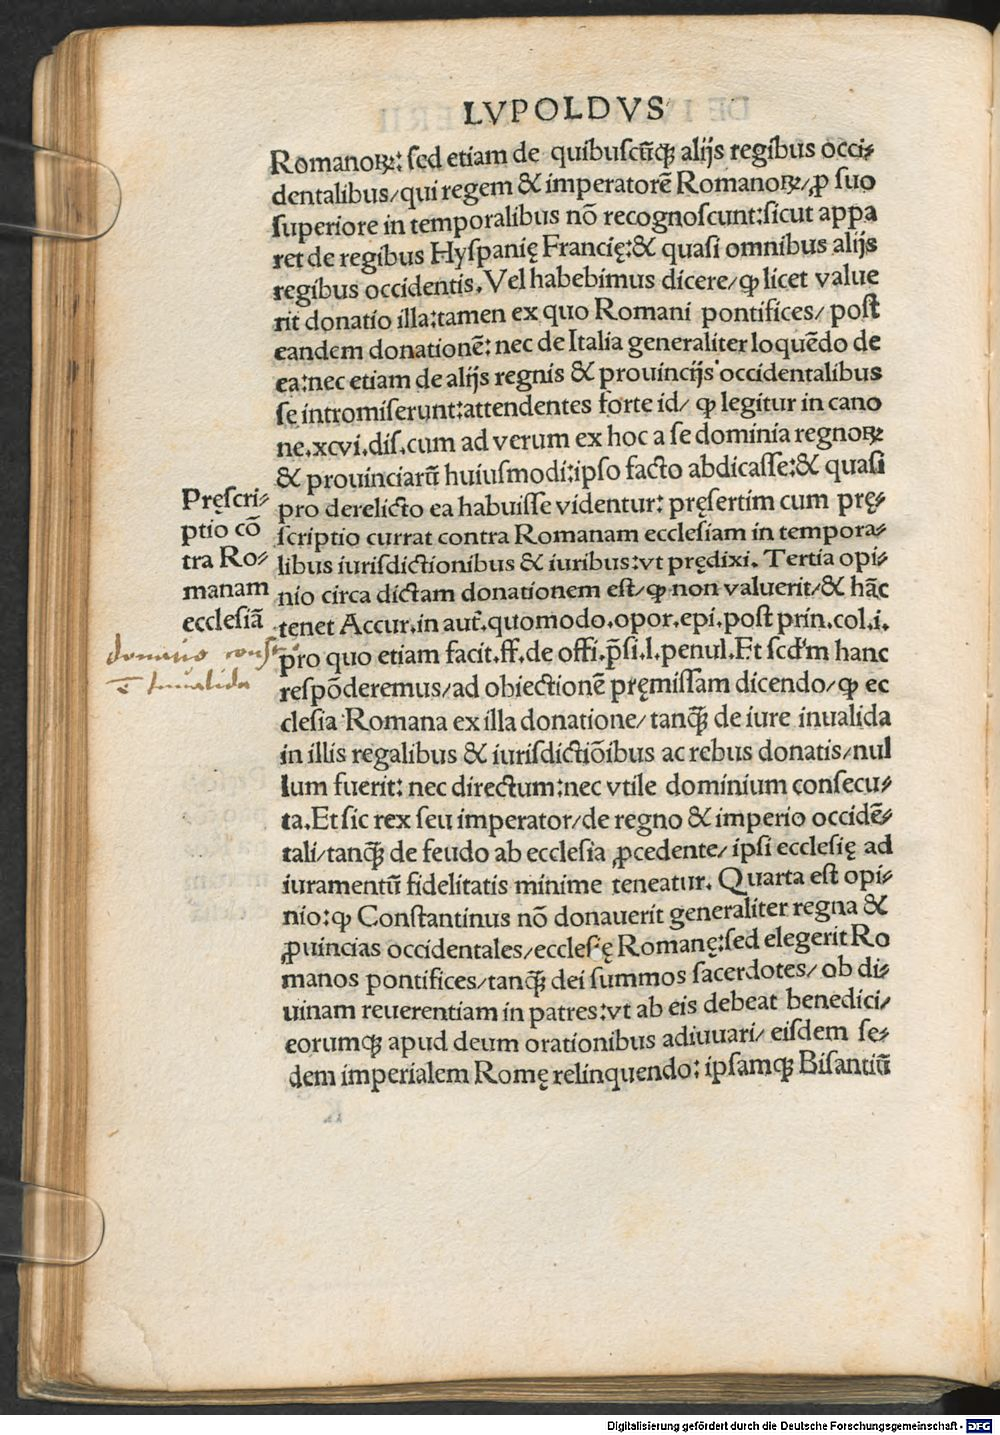 LVPOLDVS
Romanoꝝ: sed etiam de quibuscũqꝫ alijs regibus occi⸗
dentalibus/qui regem & imperatorẽ Romanoꝝ/ꝓ suo
superiore in temporalibus nõ recognoscunt:sicut appa
ret de regibus Hyspanię Francię:& quasi omnibus alijs
regibus occidentis. Vel habebimus dicere/ꝙ licet value
rit donatio illa:tamen ex quo Romani pontifices/ post
eandem donationẽ: nec de Italia generaliter loquẽdo de
ea:nec etiam de alijs regnis & prouincijs occidentalibus
se intromiserunt:attendentes forte id/ ꝙ legitur in cano
ne.xcvi.dis.cum ad verum ex hoc a se dominia regnoꝝ
& prouinciarũ huiusmodi:ipso facto abdicasse:& quasi
pro derelicto ea habuisse videntur: pręsertim cum prę⸗
scriptio currat contra Romanam ecclesiam in tempora⸗
libus iurisdictionibus & iuribus:vt prędixi. Tertia opi⸗
nio circa dictam donationem est/ꝙ non valuerit/& hãc
tenet Accur.in aut̃.quomodo.opor.epi.post prin.col.i.
pro quo etiam facit.ff.de offi.p̃si.l.penul.Et scd'm hanc
respõderemus/ad obiectionẽ pręmissam dicendo/ꝙ ec
clesia Romana ex illa donatione/tanqꝫ̃ de iure inualida
in illis regalibus & iurisdictiõibus ac rebus donatis/nul
lum fuerit: nec directum:nec vtile dominium consecu⸗
ta.Et sic rex seu imperator/de regno & imperio occidẽ⸗
tali/tanqꝫ̃ de feudo ab ecclesia ꝓcedente/ipsi ecclesię ad
iuramentũ fidelitatis minime teneatur. Quarta est opi⸗
nio:ꝙ Constantinus nõ donauerit generaliter regna &
ꝓuincias occidentales/ecclesię Romanę:sed elegerit Ro
manos pontifices/tanqꝫ̃ dei summos sacerdotes/ ob di⸗
uinam reuerentiam in patres:vt ab eis debeat benedici/
eorumqꝫ apud deum orationibus adiuuari/ eisdem se⸗
dem imperialem Romę relinquendo: ipsamqꝫ Bisantiũ
Pręscri⸗
ptio cõ
tra Ro⸗
manam
ecclesiã
donatio const
ẽ inualida
Digitalisierung gefördert durch die Deutsche Forschungsgemeinschaft - DFG